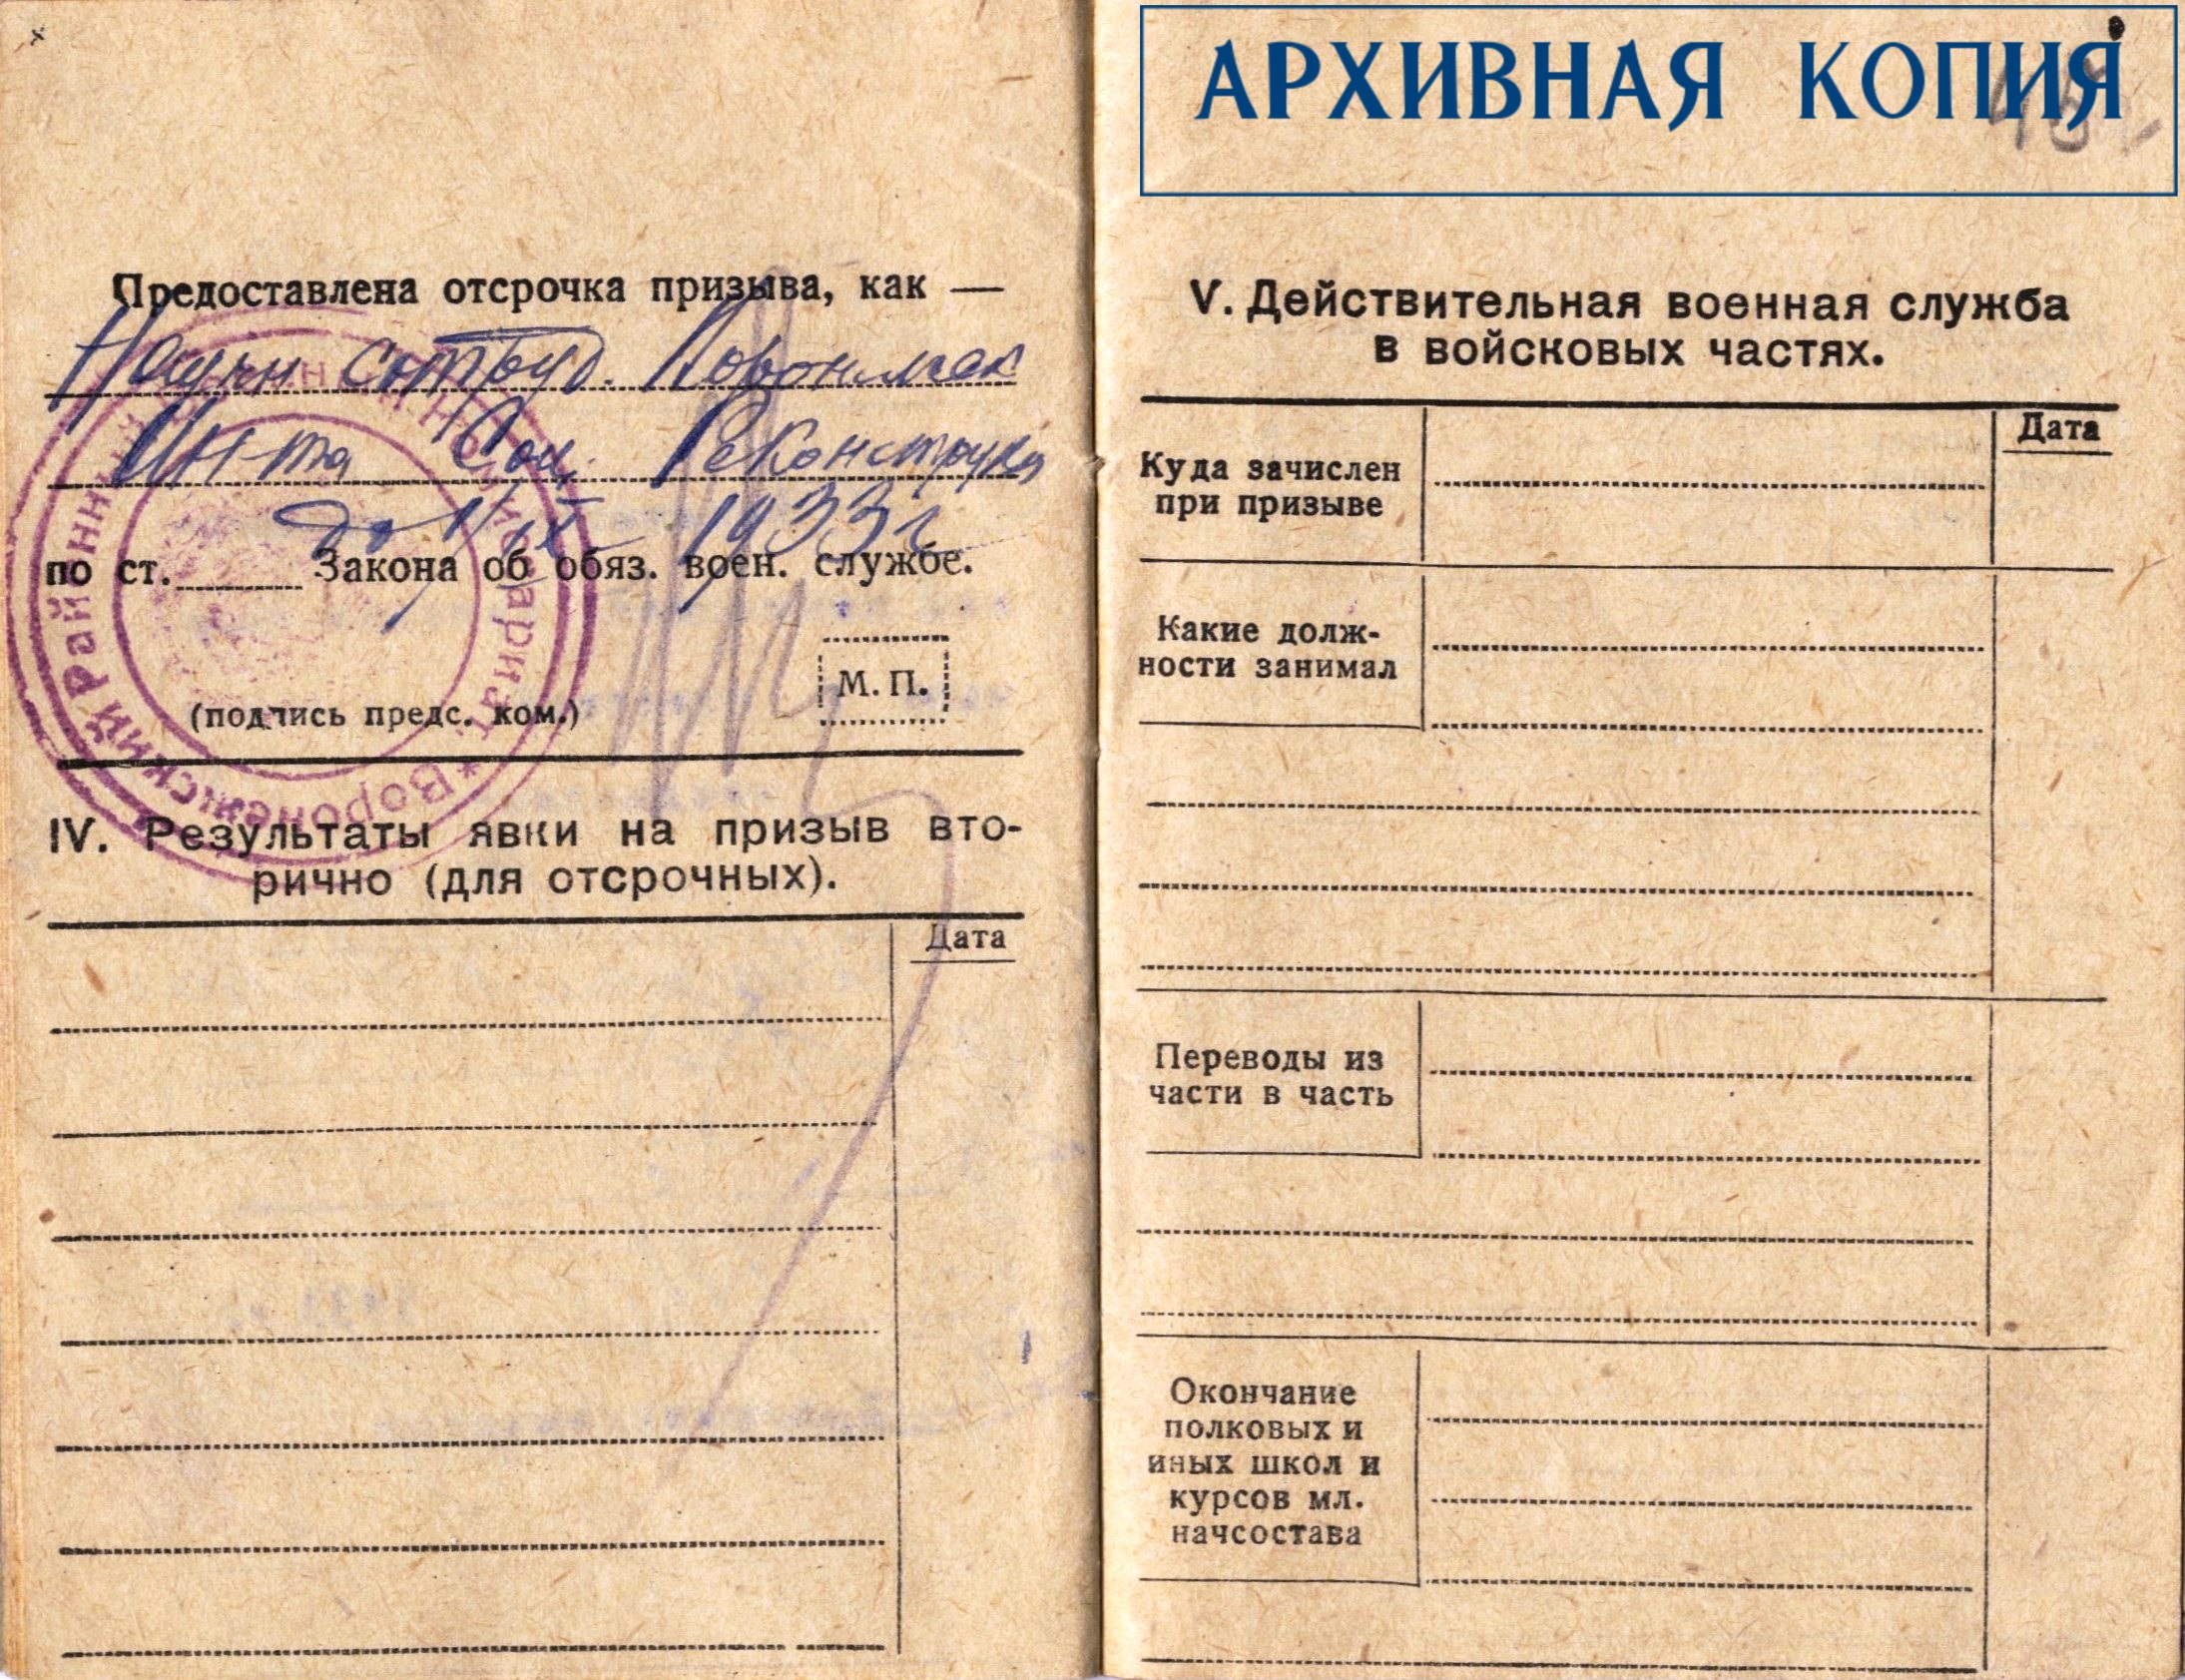 Предоставлена отсрочка призыва, как —
Научн сотруд.
Ин-та Соц. Реконструкц
до 1/IX 1933 г
по ст. Закона об обяз. воен. службе.
М. П.
(подпись предс. ком.)
Воронежский Район
IV. Результаты явки на призыв вто-
рично (для отсрочных).
Дата
АРХИВНАЯ КОПИЯ
V. Действительная военная служба
в войсковых частях.
Дата
Куда зачислен
при призыве
Какие долж-
ности занимал
Переводы из
части в часть
Окончание
полковых и
иных школ и
курсов мл.
начсостава